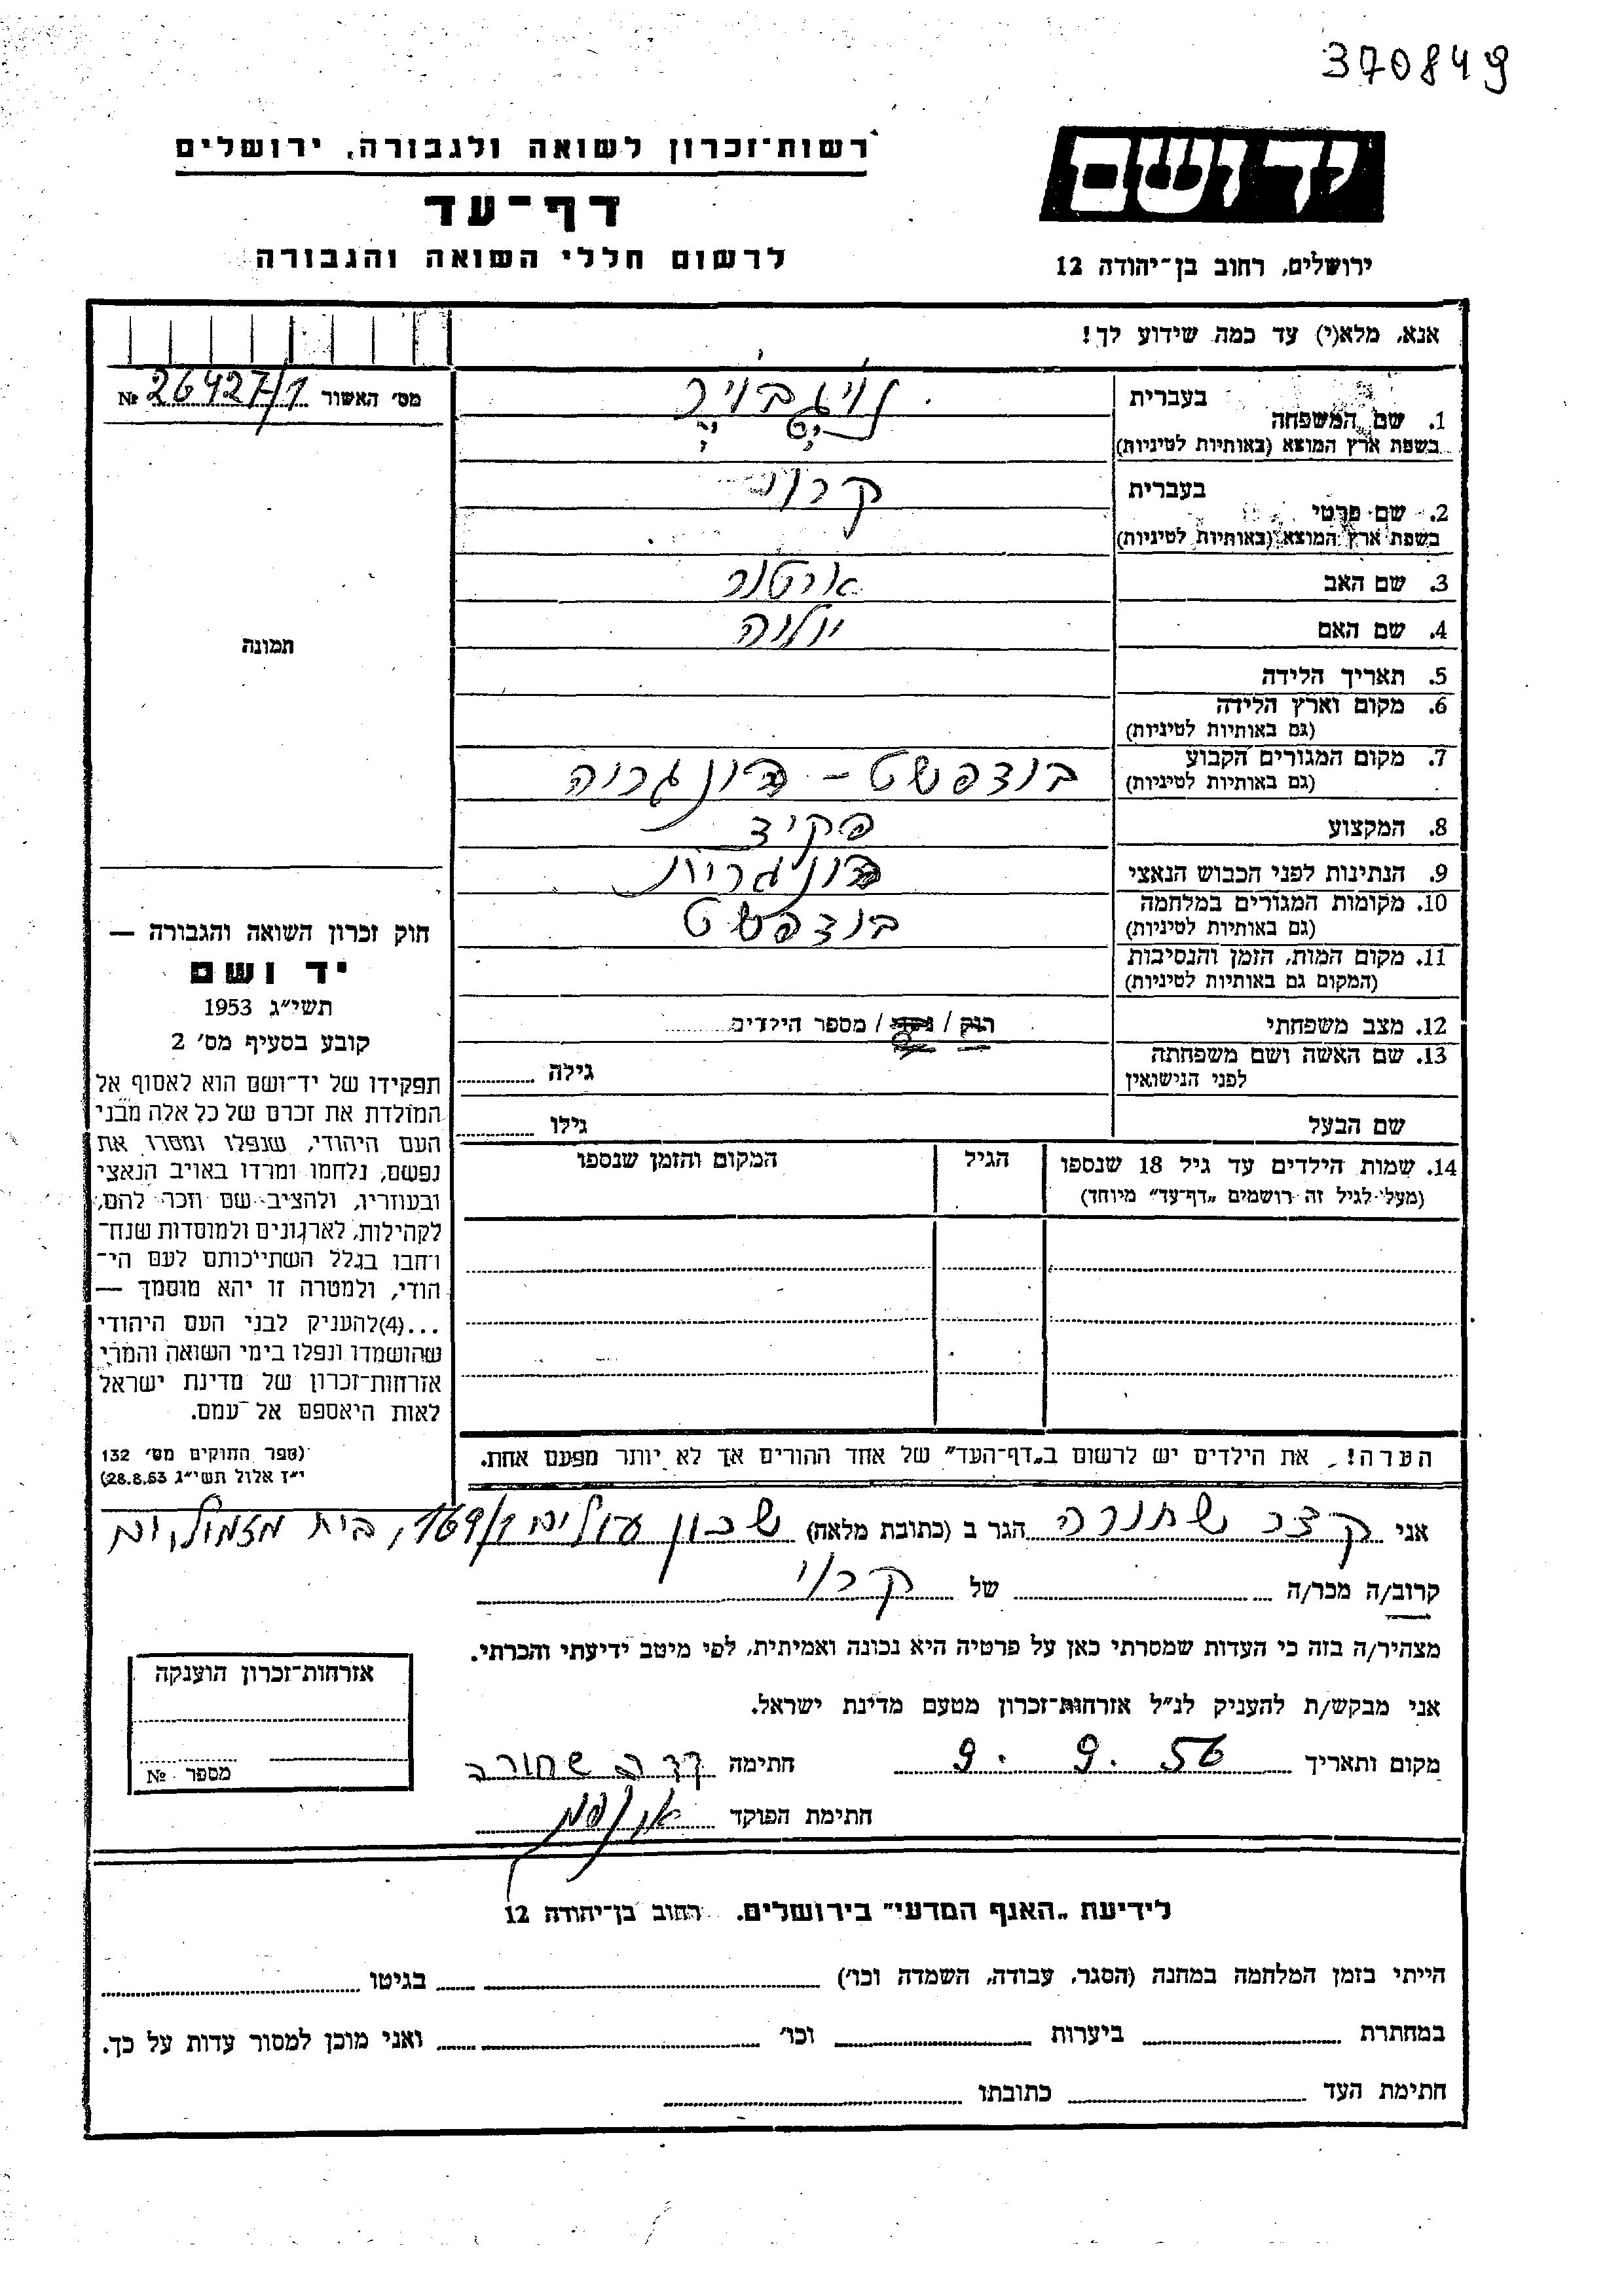 370849
רשות־זכרון לשואה ולגבורה, ירושלים
דף־עד
לרשום חללי השואה והגבורה
יד ושם
ירושלים, רחוב בן־יהודה 12
אנא, מלא(י) עד כמה שידוע לך!
מס׳ האשור 26427/1 №
1. שם המשפחה
בעברית
בשפת ארץ המוצא (באותיות לטיניות)
2. שם פרטי
בעברית
בשפת ארץ המוצא (באותיות לטיניות)
3. שם האב
4. שם האם
5. תאריך הלידה
6. מקום וארץ הלידה
(גם באותיות לטיניות)
7. מקום המגורים הקבוע בודפשט - הונגריה
(גם באותיות לטיניות)
8. המקצוע פקיד
9. הנתינות לפני הכבוש הנאצי הונגרית
10. מקומות המגורים במלחמה בודפשט
(גם באותיות לטיניות)
11. מקום המות, הזמן והנסיבות
(המקום גם באותיות לטיניות)
12. מצב משפחתי רוק / נשוי / מספר הילדים
13. שם האשה ושם משפחתה
לפני הנישואין גילה
שם הבעל גילו
14. שמות הילדים עד גיל 18 שנספו הגיל המקום והזמן שנספו
(מעל לגיל זה רושמים „דף־עד״ מיוחד)
הערה! את הילדים יש לרשום ב„דף־העד״ של אחד ההורים אך לא יותר מפעם אחת.
תמונה
חוק זכרון השואה והגבורה —
יד ושם
תשי״ג 1953
קובע בסעיף מס׳ 2
תפקידו של יד־ושם הוא לאסוף אל
המולדת את זכרם של כל אלה מבני
העם היהודי, שנפלו ומסרו את
נפשם, נלחמו ומרדו באויב הנאצי
ובעוזריו, ולהציב שם וזכר להם,
לקהילות, לארגונים ולמוסדות שנח־
רחבו בגלל השתייכותם לעם הי־
הודי, ולמטרה זו יהא מוסמך —
...(4)להעניק לבני העם היהודי
שהושמדו ונפלו בימי השואה והמרי
אזרחות־זכרון של מדינת ישראל
לאות היאספם אל עמם.
(ספר החוקים מס׳ 132
י״ז אלול תשי״ג 28.8.53)
אני קצב שחורה הגר ב (כתובת מלאה) שכון עולים 169/1, בית מזמיל,
קרוב/ה מכר/ה של
מצהיר/ה בזה כי העדות שמסרתי כאן על פרטיה היא נכונה ואמיתית, לפי מיטב ידיעתי והכרתי.
אני מבקש/ת להעניק לנ״ל אזרחות־זכרון מטעם מדינת ישראל.
מקום ותאריך 9. 9. 56 חתימה שחורה
חתימת הפוקד
אזרחות־זכרון הוענקה
מספר №
לידיעת „האגף המדעי״ בירושלים. רחוב בן־יהודה 12
הייתי בזמן המלחמה במחנה (הסגר, עבודה, השמדה וכו׳) בגיטו
במחתרת ביערות וכו׳ ואני מוכן למסור עדות על כך.
חתימת העד כתובתו